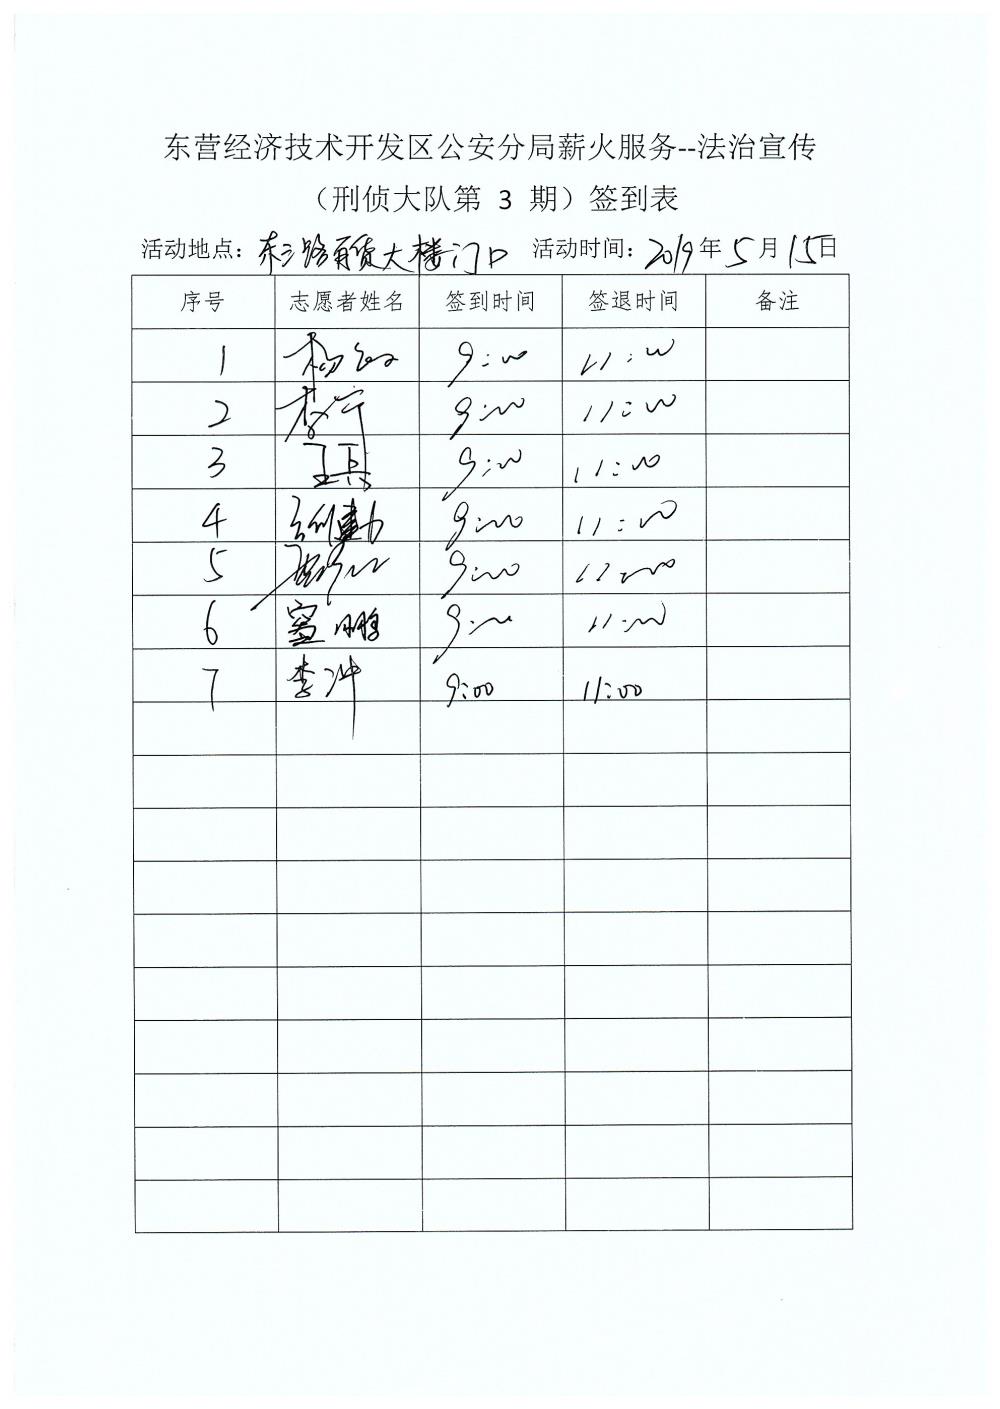 东营经济技术开发区公安分局薪火服务--法治宣传
（刑侦大队第 3 期）签到表
活动地点：东三路百货大楼门口 活动时间：2019年5月15日
序号 志愿者姓名 签到时间 签退时间 备注
1 9:00 11:00
2 李宁 9:00 11:00
3 王兵 9:00 11:00
4 9:00 11:00
5 9:00 11:00
6 鹏 9:00 11:00
7 李冲 9:00 11:00